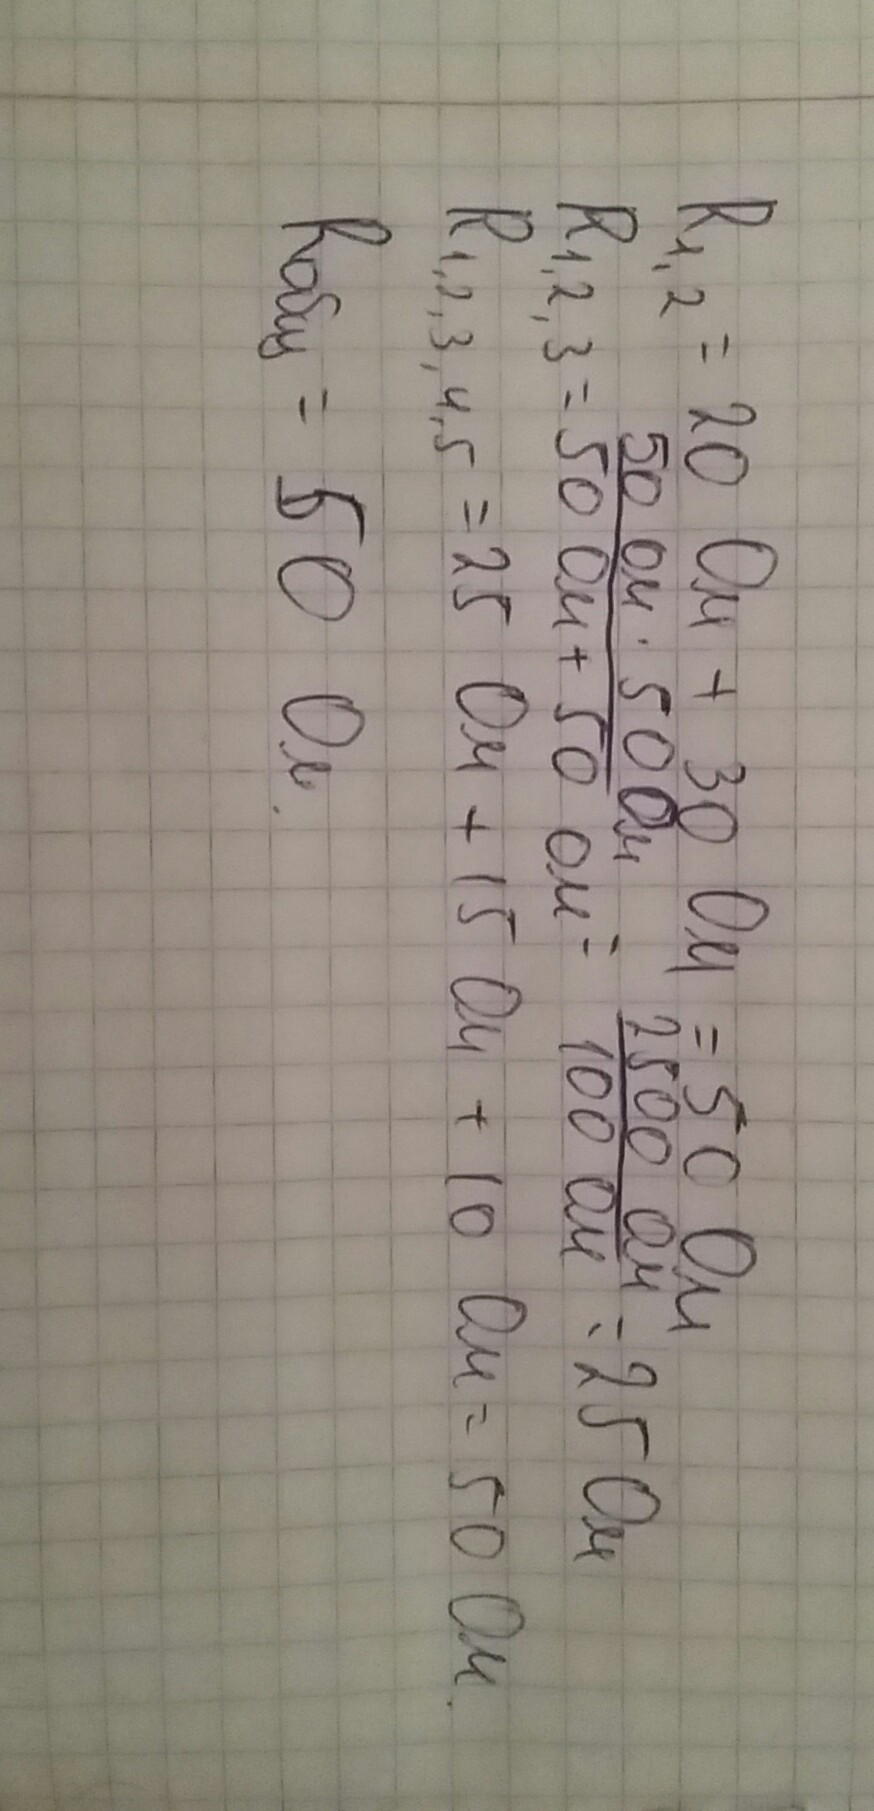 R1,2 = 20 Ом + 30 Ом = 50 Ом
R1,2,3 = 50 Ом · 50 Ом / 50 Ом + 50 Ом = 2500 Ом / 100 Ом = 25 Ом
R1,2,3,4,5 = 25 Ом + 15 Ом + 10 Ом = 50 Ом.
Rобщ = 50 Ом.